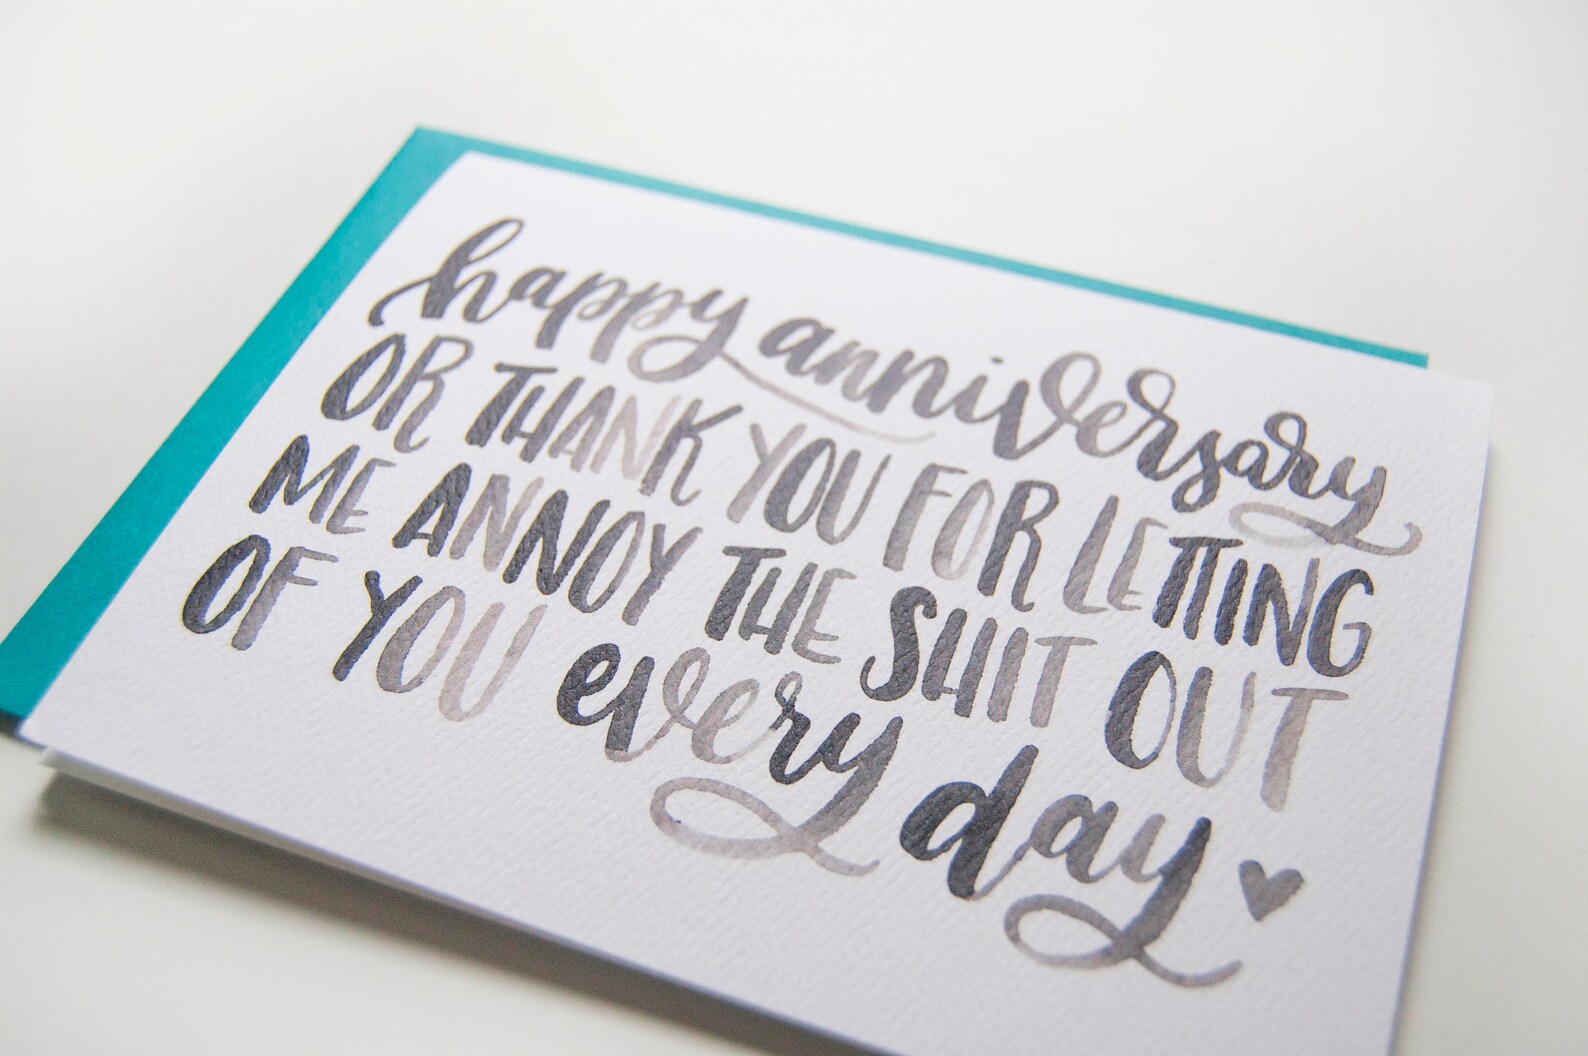 happy anniversary
OR THANK YOU FOR LETTING
ME ANNOY THE SHIT OUT
OF YOU every day